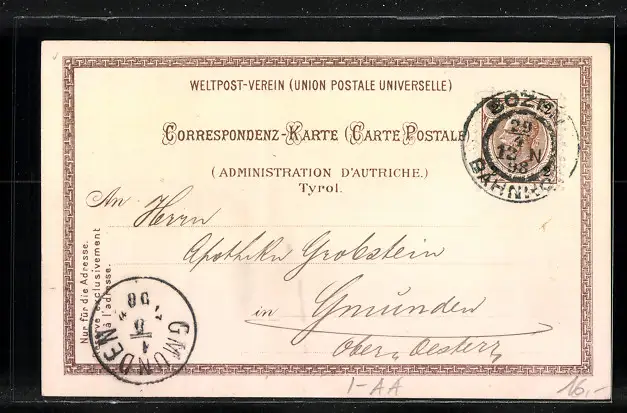 WELTPOST-VEREIN (UNION POSTALE UNIVERSELLE)
CORRESPONDENZ-KARTE (CARTE POSTALE
(ADMINISTRATION D'AUTRICHE.)
Tyrol.
BOZEN
29
4
98
BAHNHOF
An Herrn
Apotheker Grobstein
in Gmunden
Ober-Oesterr
Nur für die Adresse.
Réservé exclusivement
à l'adresse.
GMUNDEN
98
I-AA
16,-